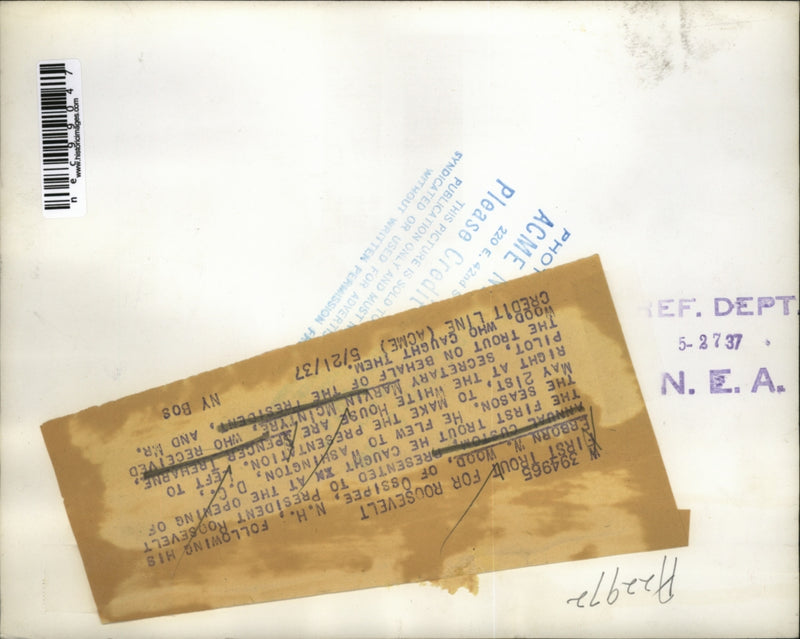 necs99047
www.historicimages.com
SYNDICATED OR USED FOR
WITHOUT WRITTEN PERMISSION
THIS PICTURE IS SOLD TO
PUBLICATION ONLY AND MUST
Please Credit
220 E. 42nd
ACME
REF. DEPT.
5-27 37
N. E. A.
394965
FIRST TROUT FOR ROOSEVELT
ERBORN N. WOOD, OF OSSIPEE, N.H., FOLLOWING HIS
ANNUAL CUSTOM, PRESENTED TO PRESIDENT ROOSEVELT
THE FIRST TROUT HE CAUGHT AT THE OPENING OF
THE SEASON. HE FLEW TO WASHINGTON, D.C.,
MAY 21ST, TO MAKE PRESENTATION. LEFT TO
RIGHT, AT THE WHITE HOUSE ARE SPENCER TREHARNE,
PILOT, SECRETARY MARVIN MCINTYRE, WHO RECEIVED
THE TROUT ON BEHALF OF THE PRESIDENT AND MR.
WOOD, WHO CAUGHT THEM.
CREDIT LINE (ACME) 5/21/37 NY BOS